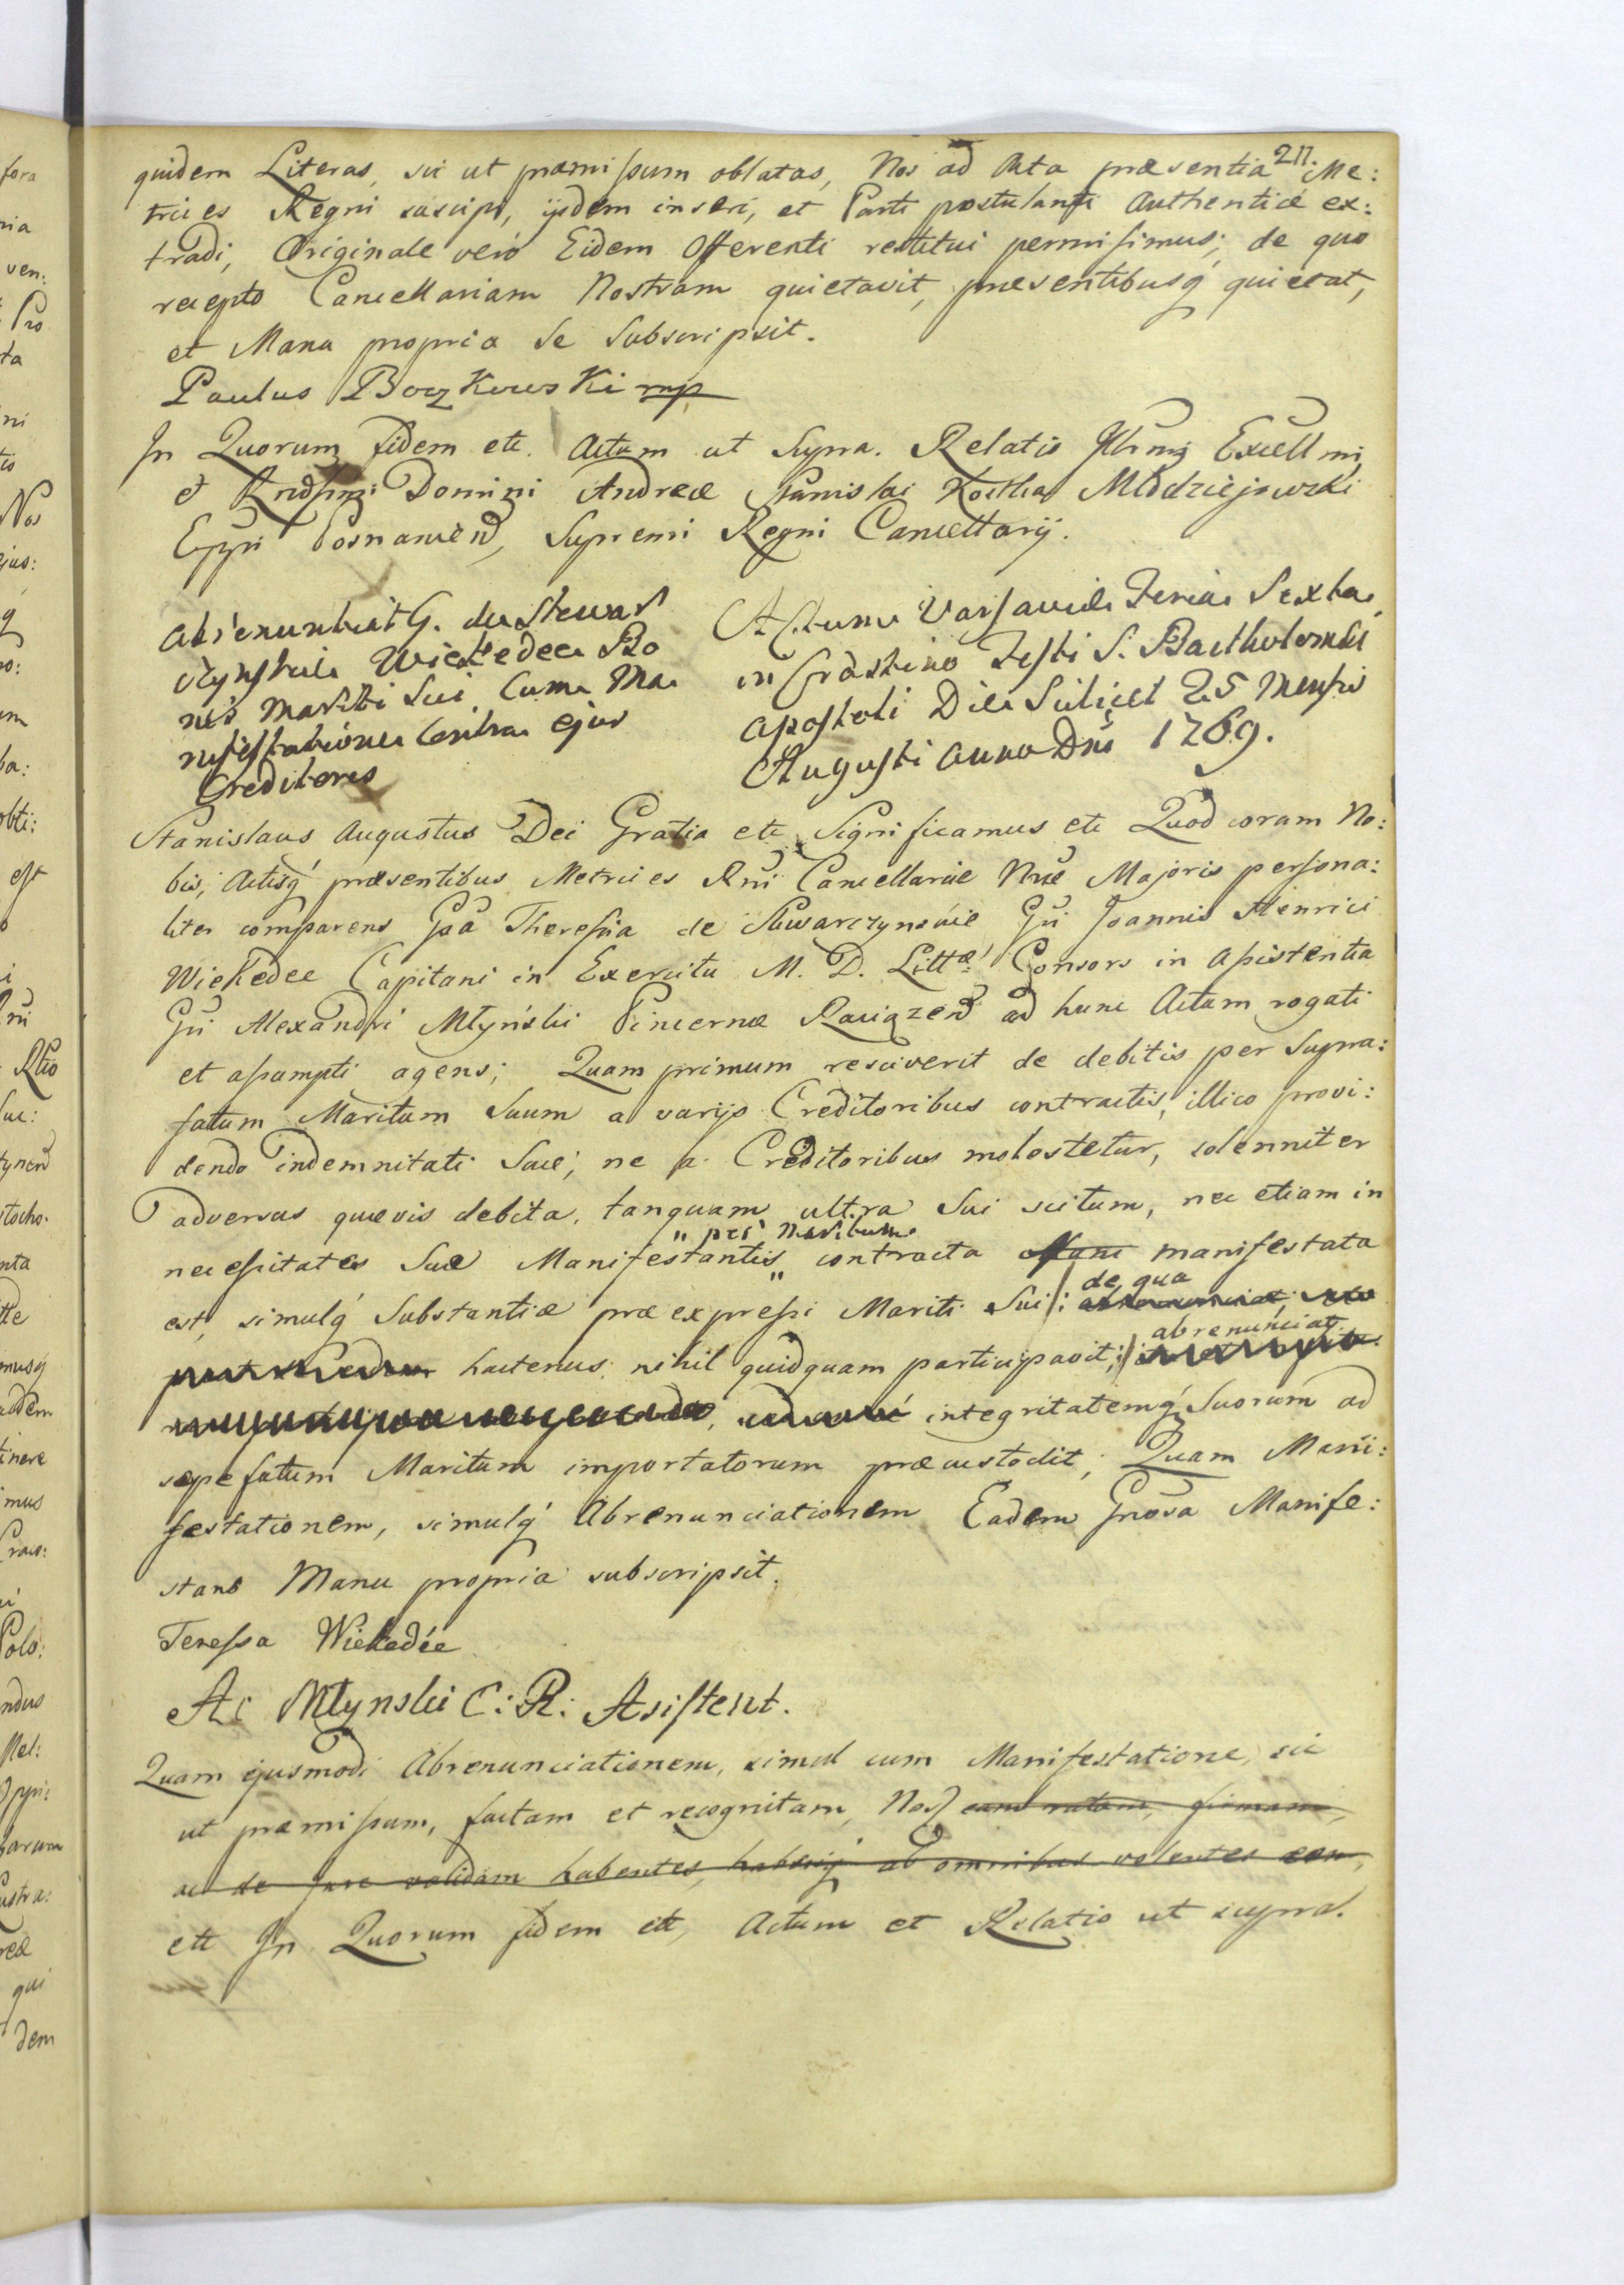 211.
quidem Literas, sic ut præmissum oblatas, Nos ad Acta præsentia Me:
trices Regni suscipi, ijsdem inseri, et Parti postulanti Authenticè ex:
tradi, Originale verò Eidem Offerenti restitui permisimus; de quo
recepto Cancellariam Nostram quietavit, præsentibusq́ quietat,
et Manu propria se Subscripsit.
Paulus Boczkowski mp
In Quorum fidem etc. Actum ut Supra. Relatio Excellmi
et Domini Andreæ Stanislai Kostka Młodziejowski
Eppi Posnanień, Supremi Regni Cancellarij.
Abrenuntiat G. de Stewar
czynskie Wiekedee Bo
nis Mariti Sui Cum Ma
nifestatione Contra ejus
Creditores
Actum Varsaviæ Feria Sexta
in Crastino Festi S. Bartholomei
Apostoli Die Scilicet 25 Mensis
Augusti Anno Dni 1769.
Stanislaus Augustus Dei Gratia etc Significamus etc Quod coram No:
bis, Actisq́ præsentibus Metrices Rni Cancellariæ Nræ Majoris persona:
liter comparens Gsa Theresia de Stewarczynskie Gsi Joannis Henrici
Wiekedee Capitani in Exercitu M. D. Littæ Consors in Assistentia
Gsi Alexandri Młyński Pincernæ Raciązeń ad hunc Actum rogati
et assumpti agens; Quam primum resciverit de debitis per Supra:
fatum Maritum Suum a varijs Creditoribus contractis, illico provi:
dendo indemnitati Suæ, ne a Creditoribus molestetur, solenniter
adversus quævis debita, tanquam ultra Sui scitum, nec etiam in
" per Maritum
necessitates Suæ Manifestantis " contracta manifestata
de qua
est, simulq́ Substantiæ præexpressi Mariti Sui
abrenunciat
hactenus nihil quidquam participavit;
integritatemq́ Suorum ad
sæpefatum Maritum importatorum præcustodit; Quam Mani:
festationem, simulq́ Abrenunciationem Eadem Gnosa Manife:
stans Manu propria subscripsit.
Teressa Wiekedée
A: Młynski C: R: Asistent.
Quam ejusmodi Abrenunciationem, simul cum Manifestatione, sic
ut præmissum, factam et recognitam, Nos eam ratam, firmam,
ac de jure validam habentes, haberiq́ ab omnibus volentes eam,
ett In Quorum fidem ett, Actum et Relatio ut supra.